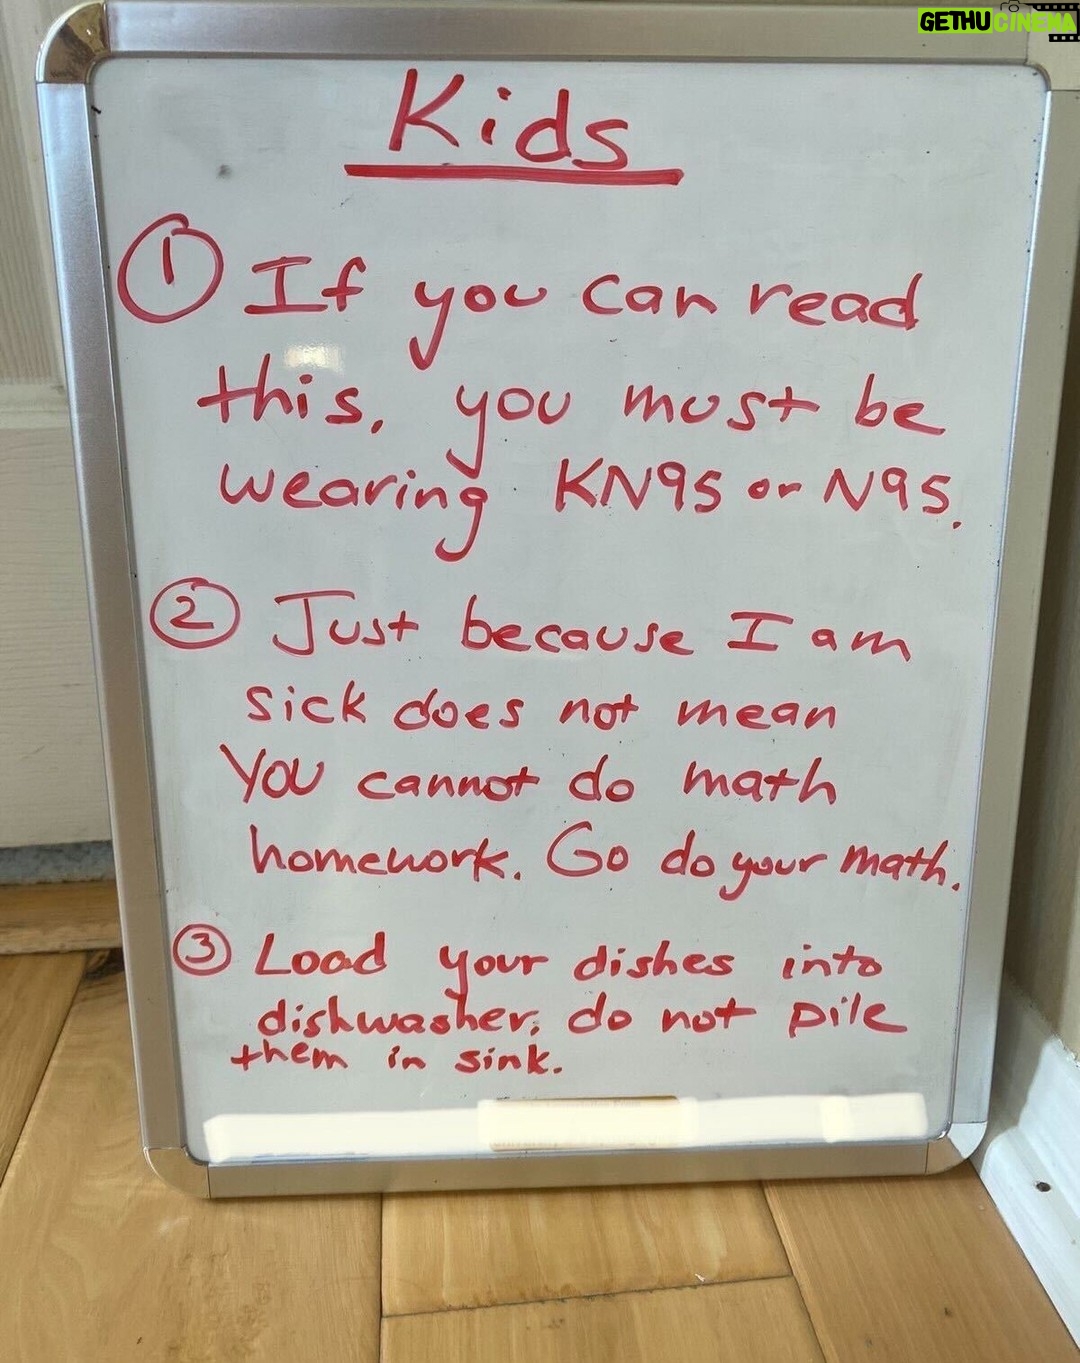 GETHUCINEMA
Kids
1 If you can read
this, you must be
wearing KN95 or N95.
2 Just because I am
sick does not mean
You cannot do math
homework. Go do your math.
3 Load your dishes into
dishwasher, do not pile
them in sink.